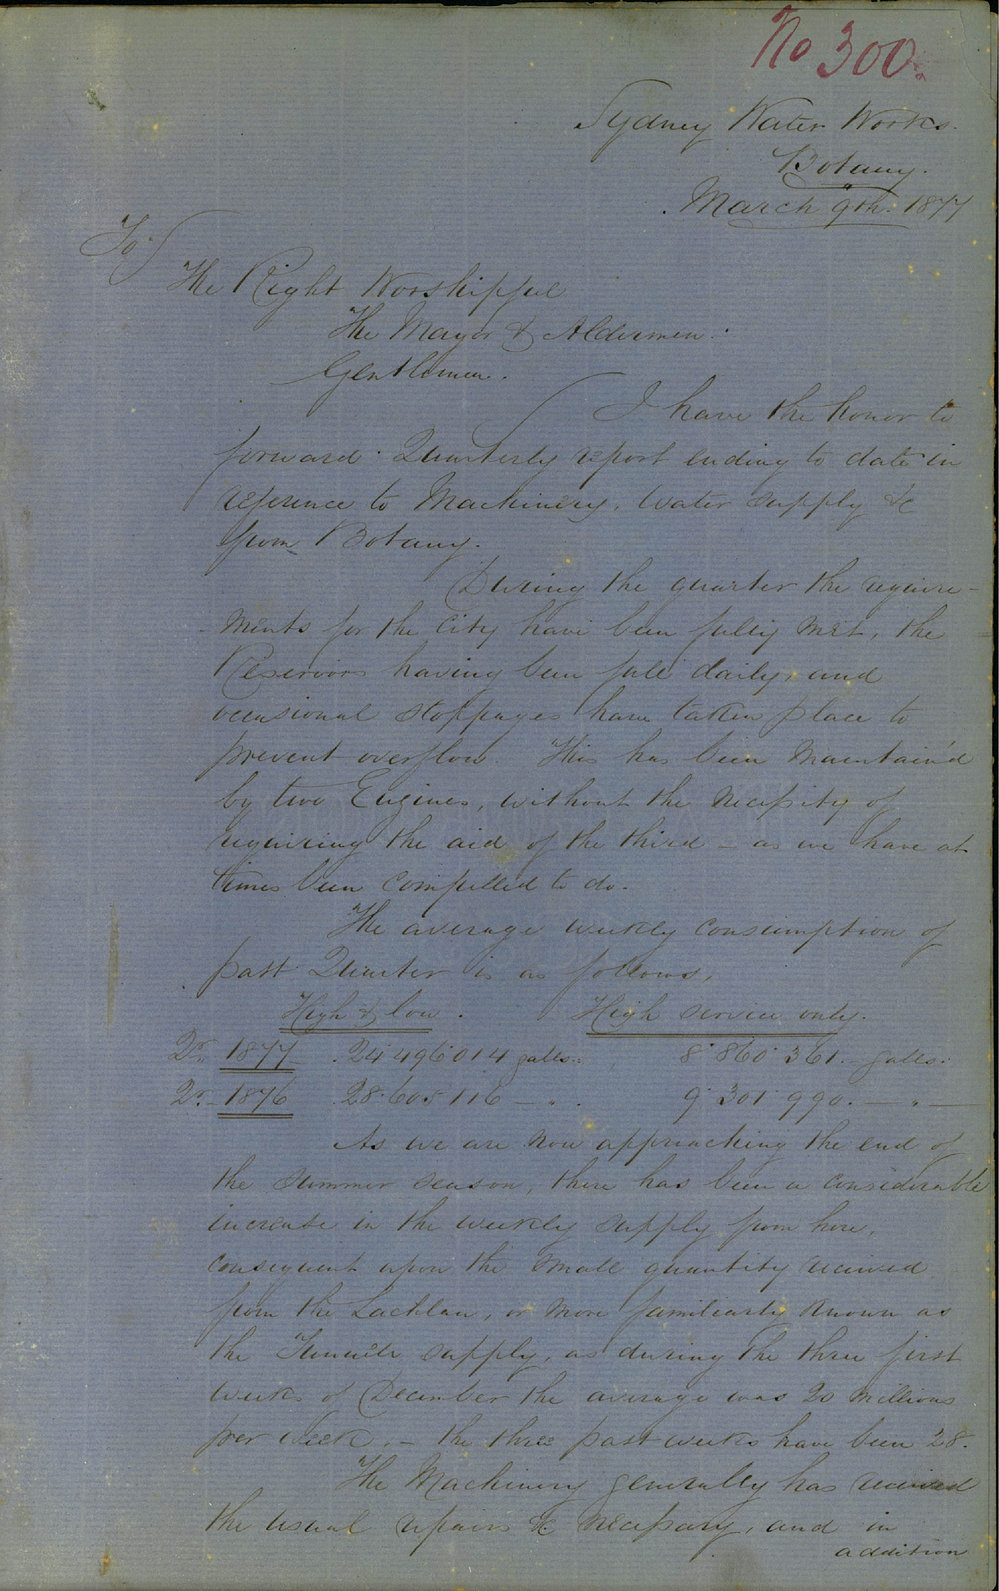 No 300.
Sydney Water Works.
Botany.
March 9th. 1877
To
The Right Worshipful
The Mayor & Aldermen.
Gentlemen.
I have the honor to
forward Quarterly report ending to date in
reference to Machinery, Water supply &c
from Botany.
During the quarter the require-
-ments for the City have been fully met, the
Reservoirs having been full daily, and
occasional stoppages have taken place to
prevent overflow. This has been maintain'd
by two Engines, without the necessity of
requiring the aid of the third – as we have at
times been compelled to do.
The average weekly consumption of
past Quarter is as follows,
High & low. High service only.
Qr. 1877 24 496 014 galls. 8 860 361. galls.
Qr. 1876 28 605 116 – " 9 301 990. – " –
As we are now approaching the end of
the summer season, there has been a considerable
increase in the weekly supply from here,
consequent upon the small quantity received
from the Lachlan, or more familiarly known as
the Tunnel supply, as during the three first
weeks of December the average was 20 millions
per week, – the three past weeks have been 28.
The Machinery generally has received
the usual repairs &c necessary, and in
addition